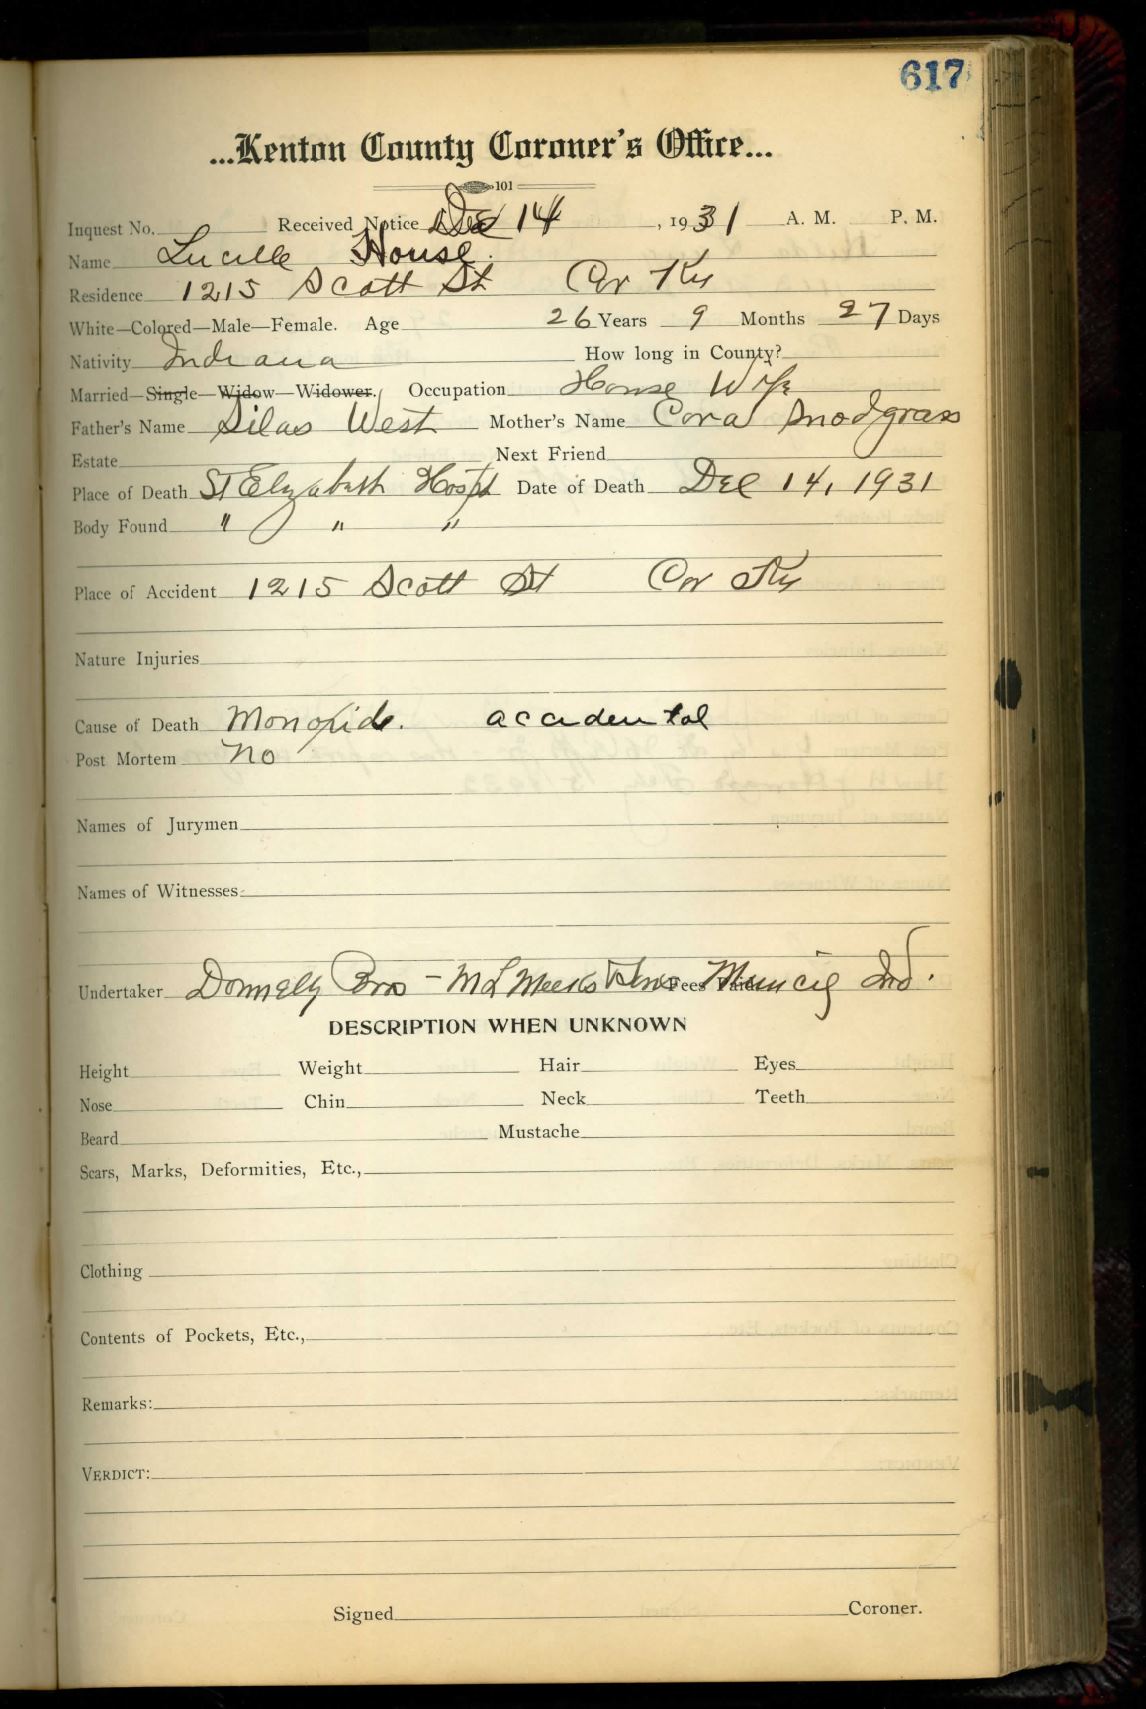 617
...Kenton County Coroner's Office...
101
Inquest No. Received Notice Dec 14, 1931 A. M. P. M.
Name Lucille House.
Residence 1215 Scott St Cov Ky
White—Colored—Male—Female. Age 26 Years 9 Months 27 Days
Nativity Indiana How long in County?
Married—Single—Widow—Widower. Occupation House Wife
Father's Name Silas West Mother's Name Cora Snodgrass
Estate Next Friend
Place of Death St Elizabeth Hospt Date of Death Dec 14, 1931
Body Found " " "
Place of Accident 1215 Scott St Cov Ky
Nature Injuries
Cause of Death Monoxide. accidental
Post Mortem No
Names of Jurymen
Names of Witnesses
Undertaker Donnelly Bros - M L Meeks Fees Paid Muncie Ind.
DESCRIPTION WHEN UNKNOWN
Height Weight Hair Eyes
Nose Chin Neck Teeth
Beard Mustache
Scars, Marks, Deformities, Etc.,
Clothing
Contents of Pockets, Etc.,
Remarks:
VERDICT:
Signed Coroner.